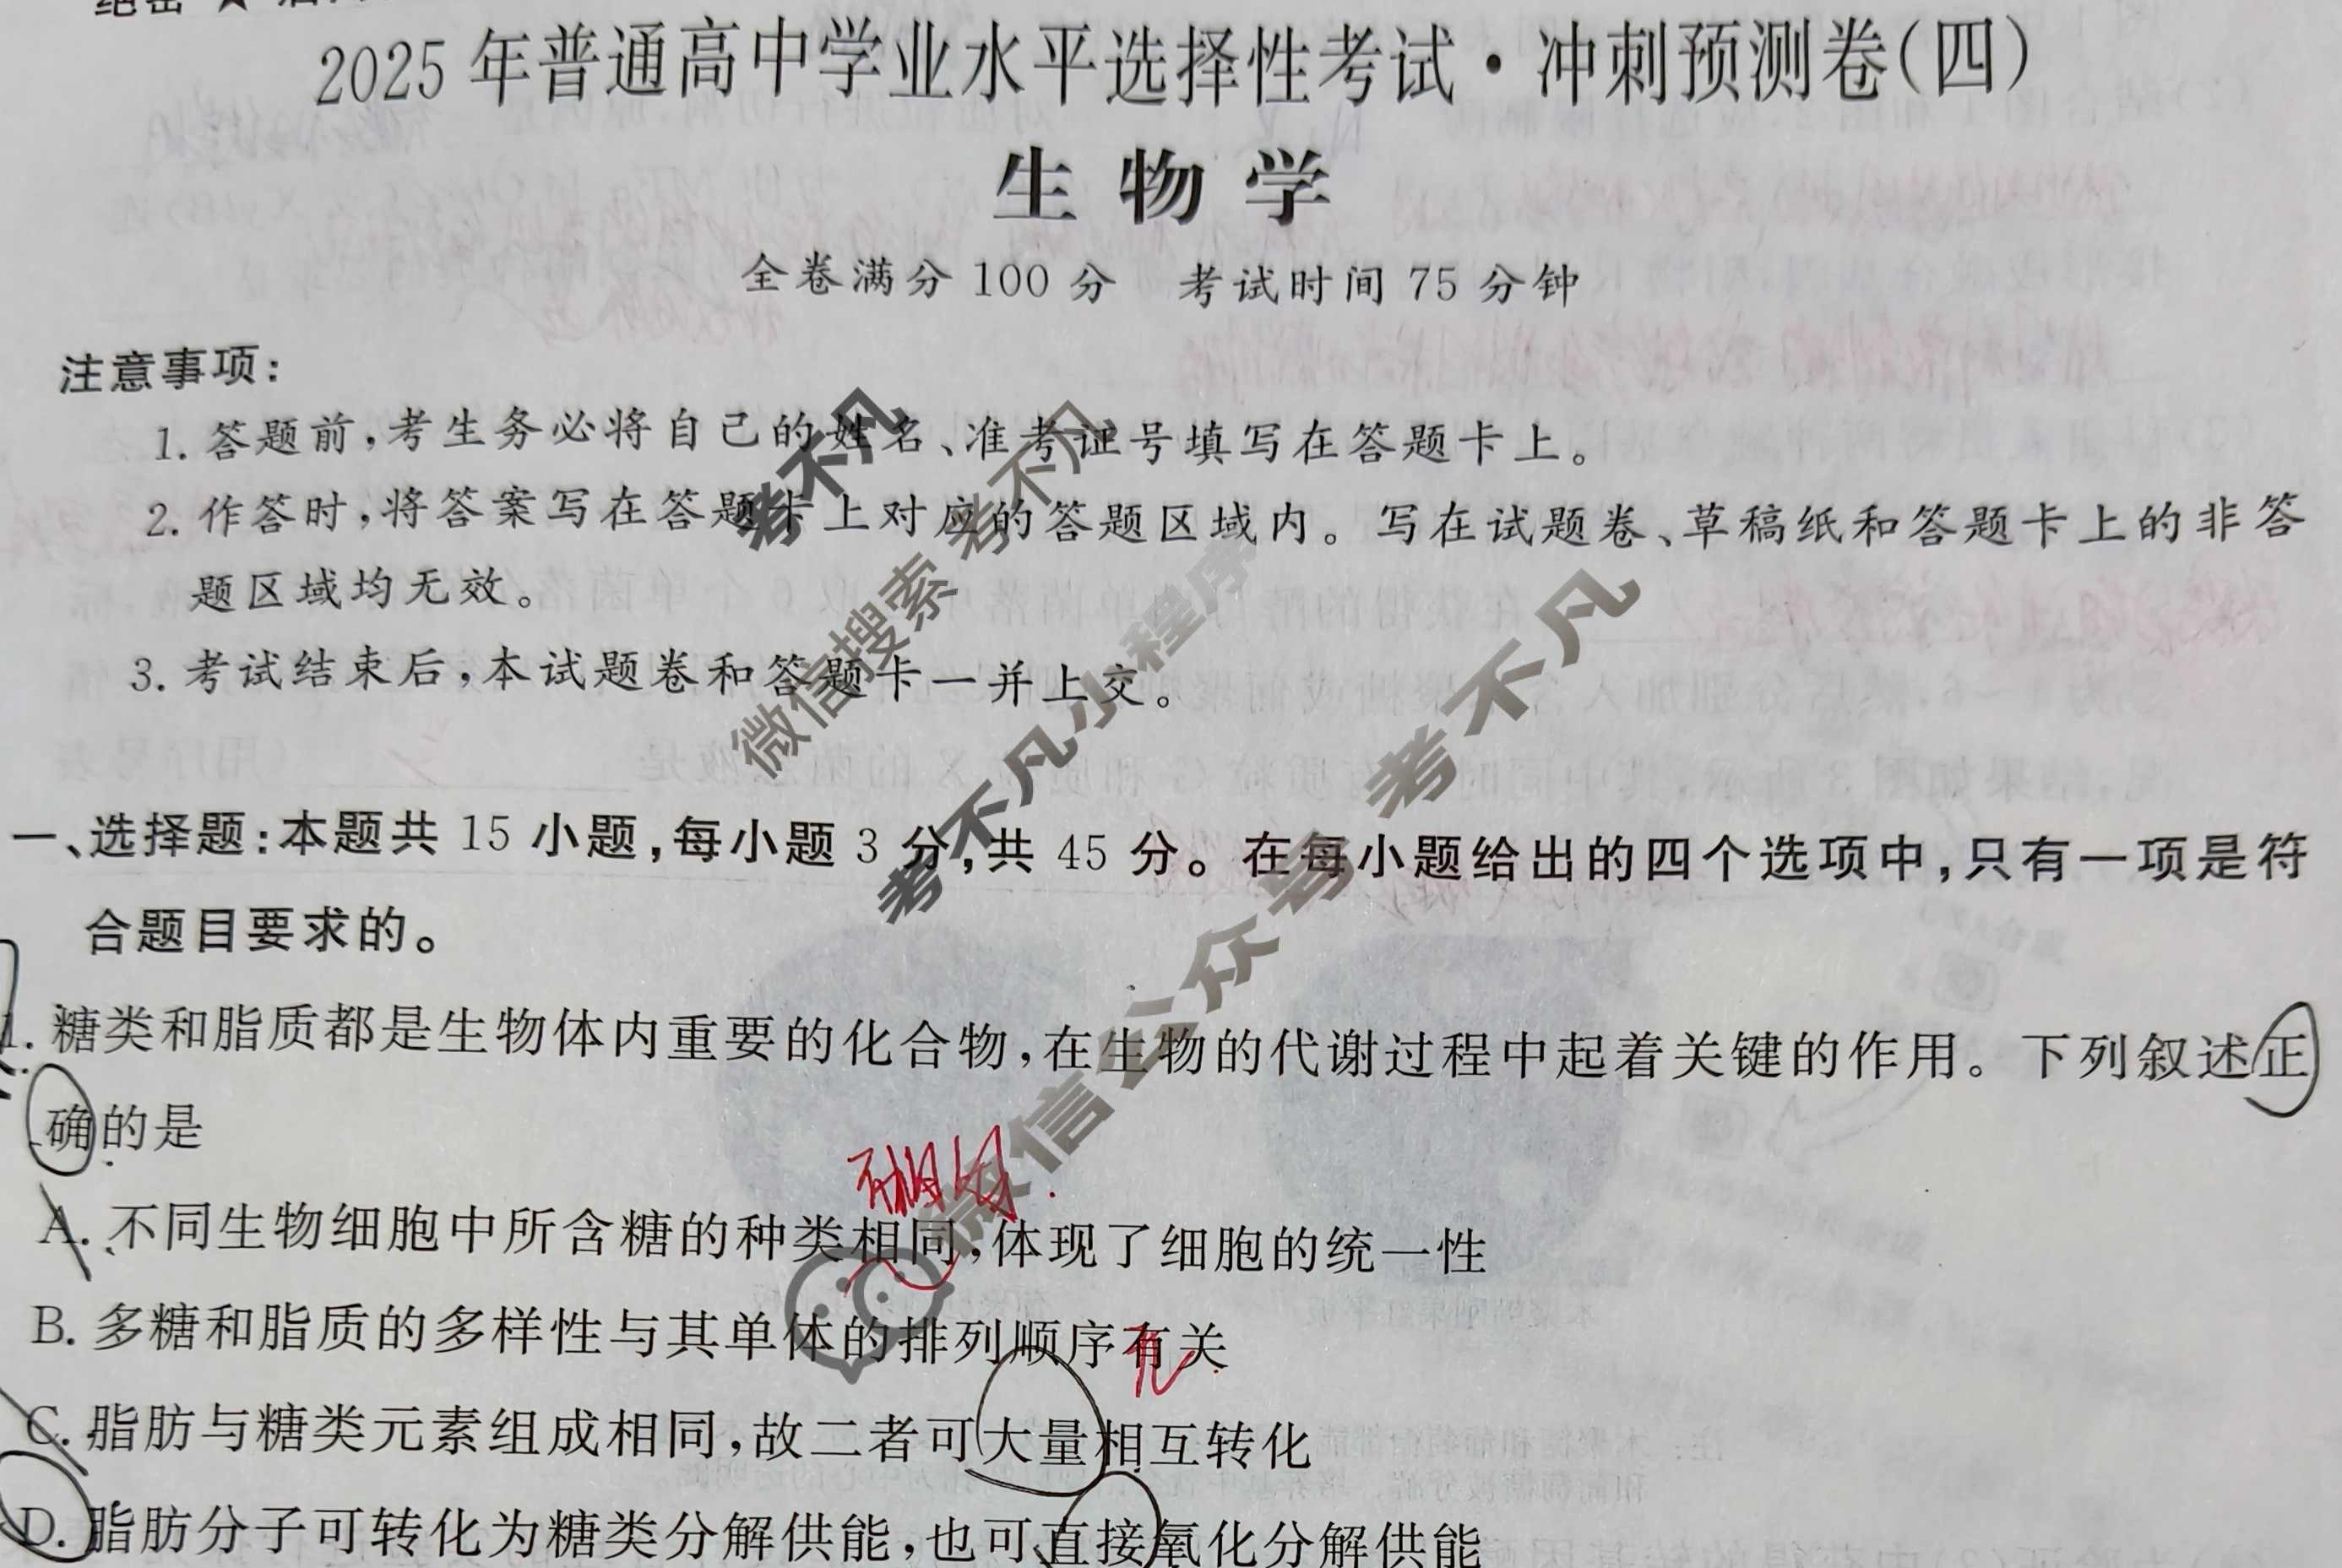 2025年普通高中学业水平选择性考试·冲刺预测卷(四)
生物学
全卷满分100分 考试时间75分钟
注意事项:
1.答题前,考生务必将自己的姓名、准考证号填写在答题卡上。
2.作答时,将答案写在答题卡上对应的答题区域内。写在试题卷、草稿纸和答题卡上的非答
题区域均无效。
3.考试结束后,本试题卷和答题卡一并上交。
考不凡
微信搜索 考不凡
考不凡小程序
微信公众号 考不凡
一、选择题:本题共15小题,每小题3分,共45分。在每小题给出的四个选项中,只有一项是符
合题目要求的。
1.糖类和脂质都是生物体内重要的化合物,在生物的代谢过程中起着关键的作用。下列叙述正
确的是
A.不同生物细胞中所含糖的种类相同,体现了细胞的统一性
B.多糖和脂质的多样性与其单体的排列顺序有关
无
C.脂肪与糖类元素组成相同,故二者可大量相互转化
D.脂肪分子可转化为糖类分解供能,也可直接氧化分解供能